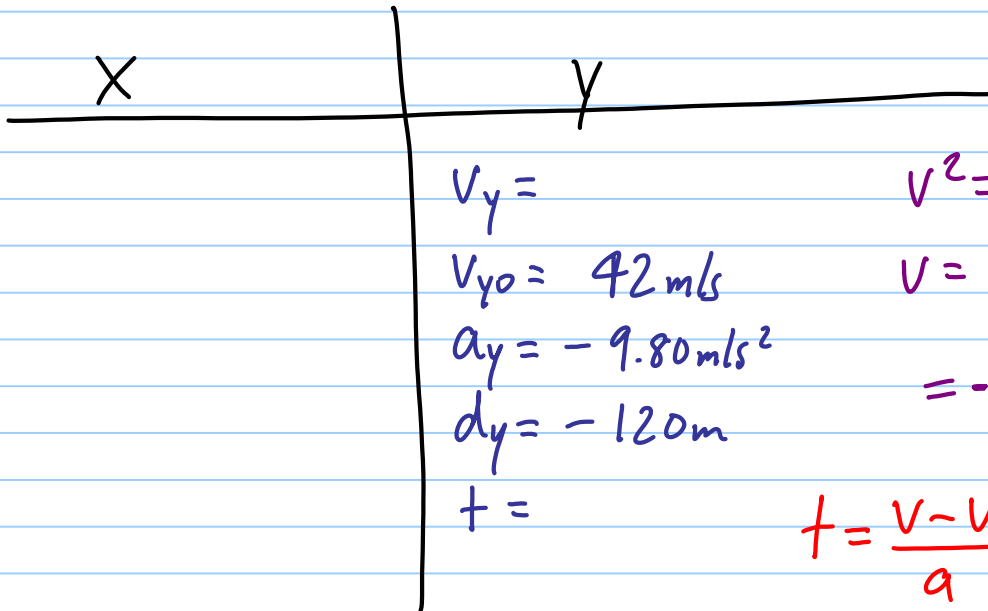 X Y
Vy =
Vyo = 42 m/s
ay = - 9.80 m/s²
dy = - 120 m
t =
V² =
V =
= -
t = V - V
a